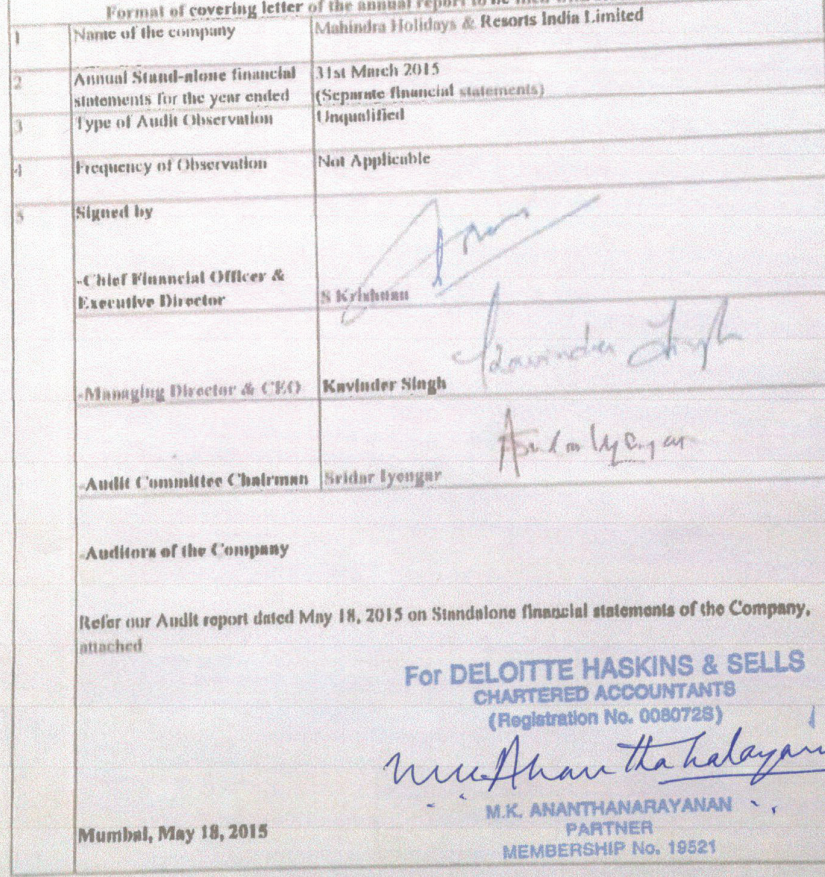 Format of covering letter of the annual report to be filed with
1 Name of the company Mahindra Holidays & Resorts India Limited
2 Annual Stand-alone financial 31st March 2015
statements for the year ended (Separate financial statements)
3 Type of Audit Observation Unqualified
4 Frequency of Observation Not Applicable
5 Signed by
-Chief Financial Officer &
Executive Director S Krishnan
Kavinder Singh
-Managing Director & CEO Kavinder Singh
-Audit Committee Chairman Sridar Iyengar
-Auditors of the Company
Refer our Audit report dated May 18, 2015 on Standalone financial statements of the Company,
attached
For DELOITTE HASKINS & SELLS
CHARTERED ACCOUNTANTS
(Registration No. 008072S)
M.K. ANANTHANARAYANAN
PARTNER
Mumbai, May 18, 2015
MEMBERSHIP No. 19521